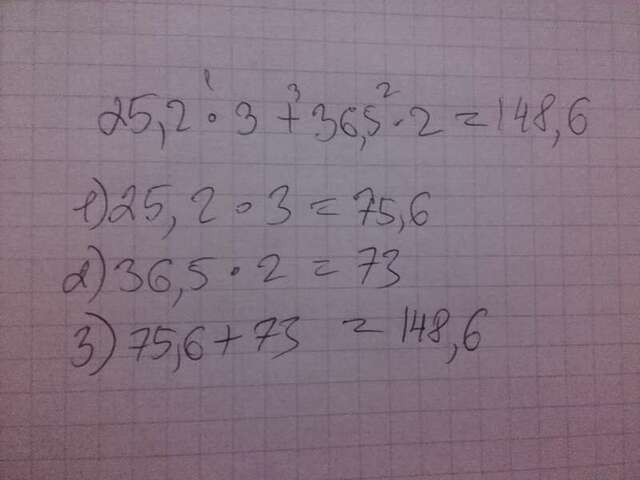 25,2 · 3 + 36,5 · 2 = 148,6
1) 25,2 · 3 = 75,6
2) 36,5 · 2 = 73
3) 75,6 + 73 = 148,6